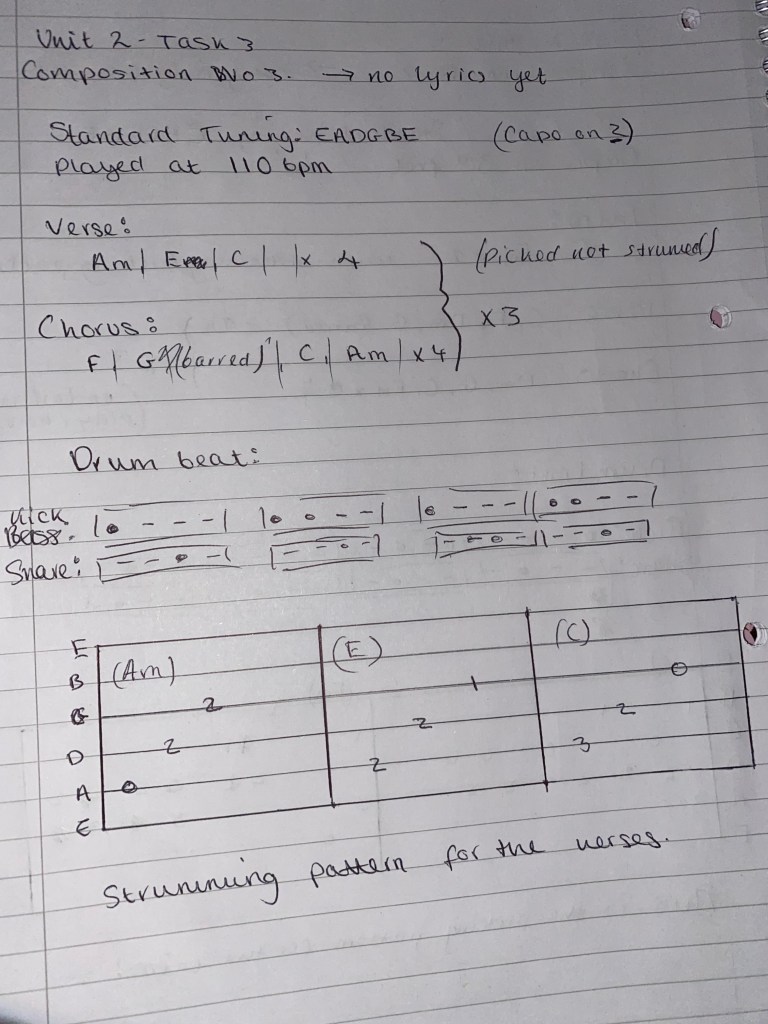 Unit 2 - Task 3
Composition No 3. → no lyrics yet
Standard Tuning: EADGBE (Capo on 3)
Played at 110 bpm
Verse:
Am | E | C | | x 4 (picked not strumed)
Chorus: x 3
F | G (barred) | C | Am | x 4
Drum beat:
Kick
Bass. |• - - -| |• • - -| |• - - -||• • - -|
Snare: |- - • -| |- - • -| |- - • -||- - • -|
E
B (Am) (E) (C) 0
G 2 1
D 2 2 2
A 0 2 3
E
Strumming pattern for the verses.